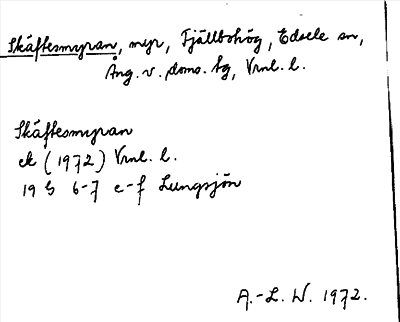 Skäftesmyran, myr, Fjällbohög, Edsele sn,
Ång. v. doms. hg, Vrnl. l.
Skäftesmyran
ek (1972) Vrnl. l.
19 G 6-7 e-f Lungsjön
A.-L. W. 1972.